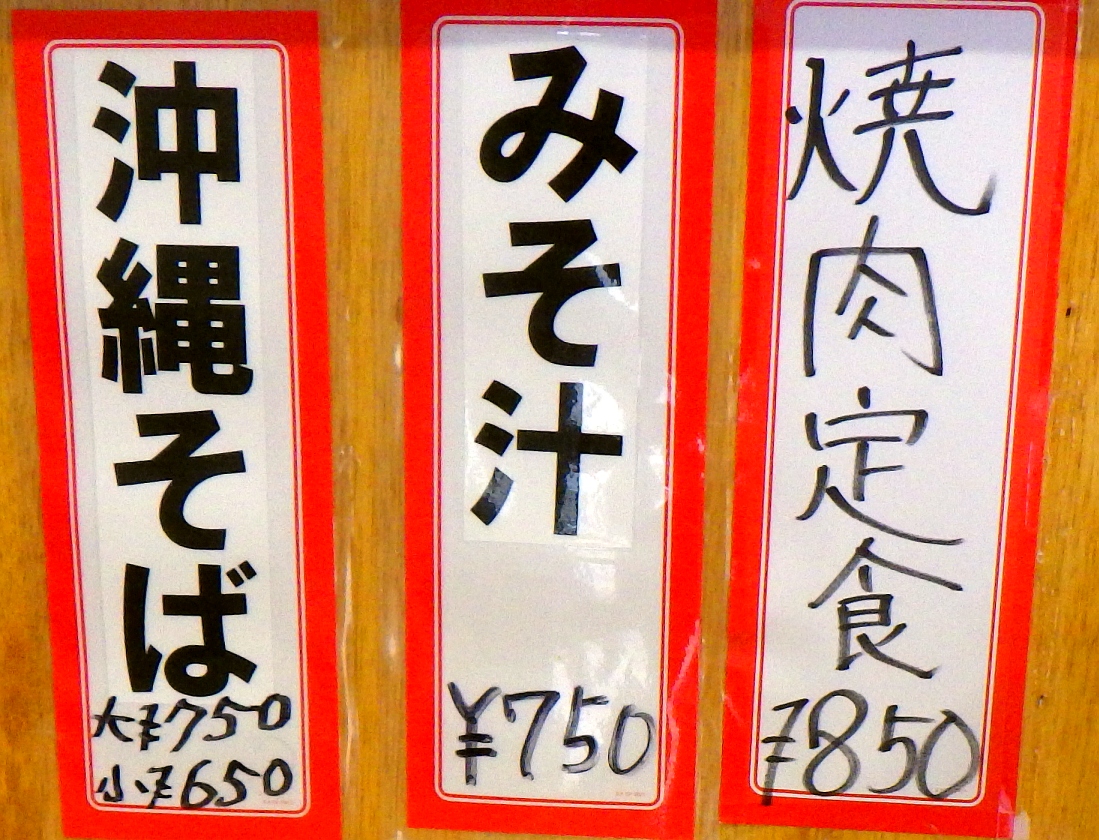 焼肉定食
¥850
みそ汁
¥750
沖縄そば
大¥750
小¥650